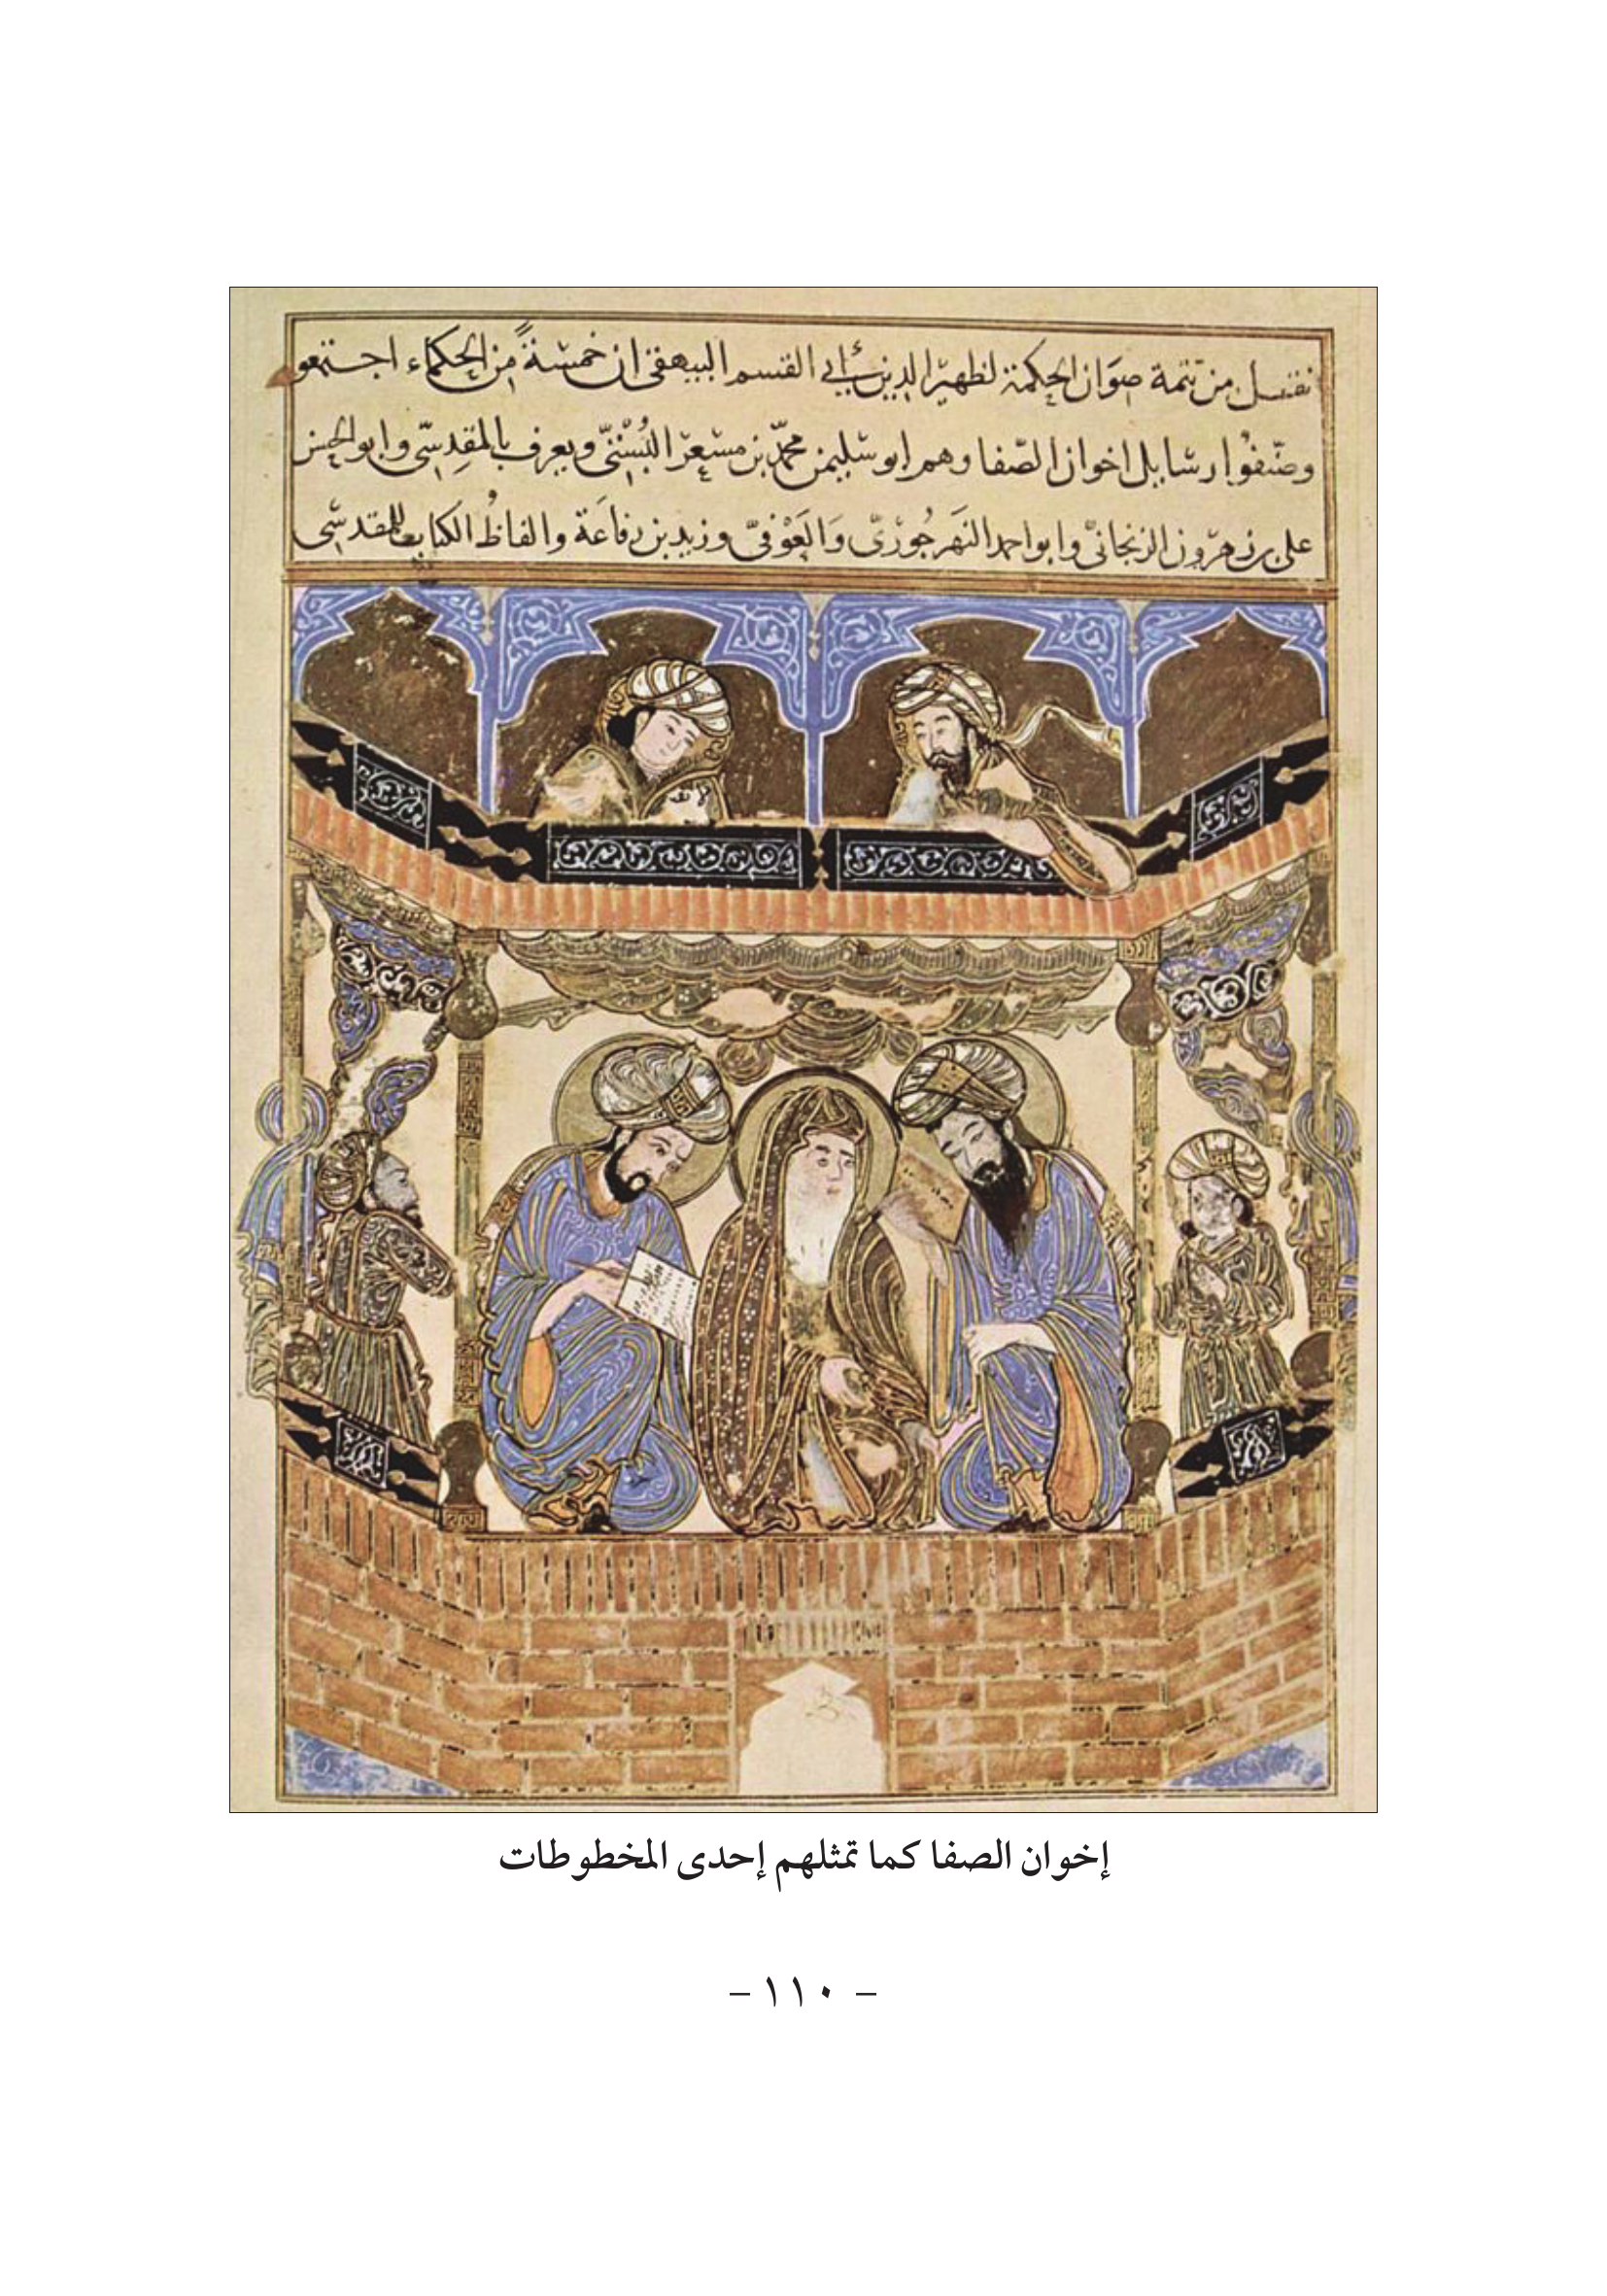 نقل من تتمة صوان الحكمة لظهير الدين أبي القسم البيهقي ان خمسةً من الحكماء اجتمعو
وصنّفوا رسايل اخوان الصّفا وهم ابو سليمن محمّد بن مسعر البُستيّ ويعرف بالمقدِسيّ وابو الحسن
علي بن هرون الزنجانيّ وابو احمد النهرجُوريّ وَالعَوْفيّ وزيد بن رفاعَة والفاظُ الكتاب للمقدسّي
إخوان الصفا كما تمثلهم إحدى المخطوطات
– ١١٠ –